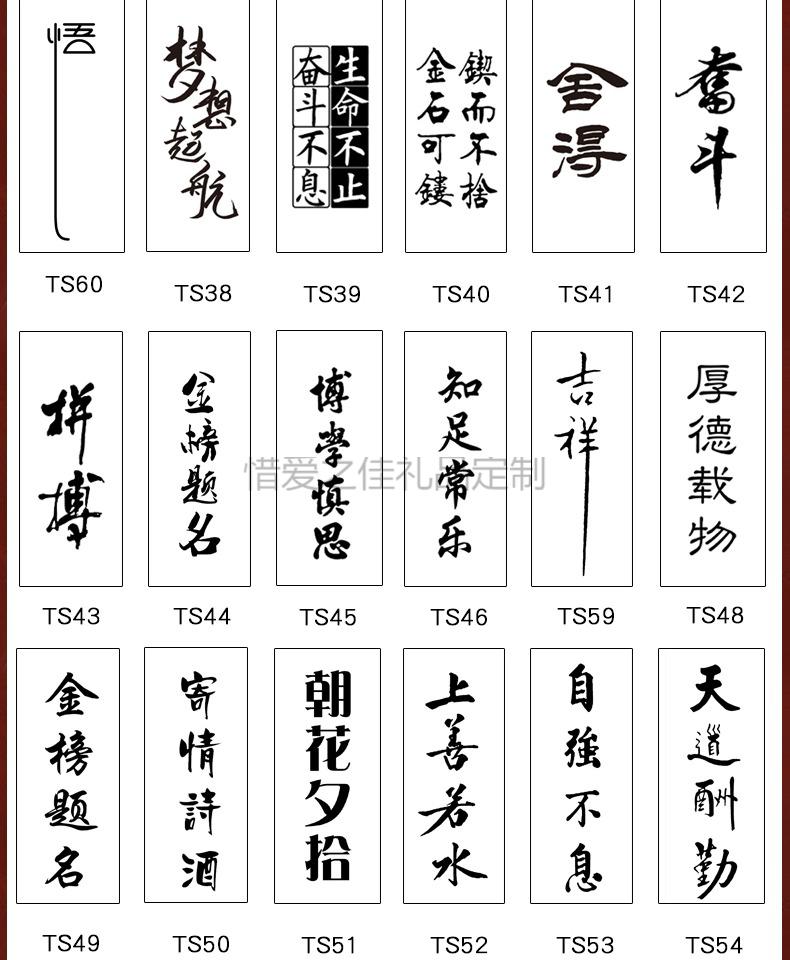 悟
梦想起航
生命不止
奋斗不息
鍥而不捨
金石可鏤
舍得
奮斗
TS60
TS38
TS39
TS40
TS41
TS42
拼搏
金榜题名
博學慎思
知足常乐
吉祥
厚德载物
惜爱之佳礼品定制
TS43
TS44
TS45
TS46
TS59
TS48
金榜题名
寄情詩酒
朝花夕拾
上善若水
自強不息
天道酬勤
TS49
TS50
TS51
TS52
TS53
TS54